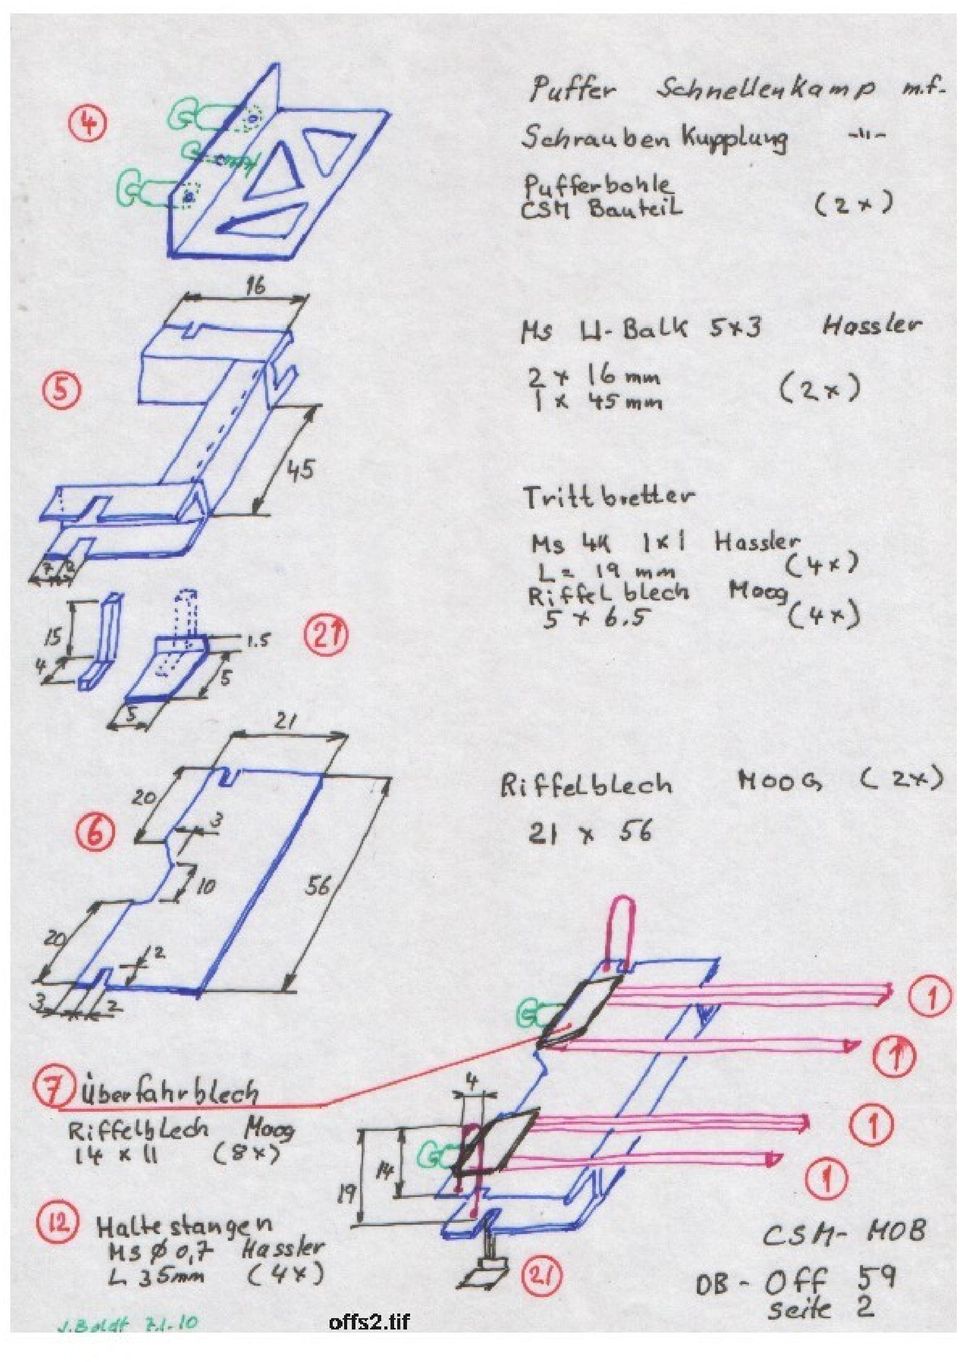 4
Puffer Schnellenkamp m.f.
Schrauben Kupplung -"-
Pufferbohle
CSM Bauteil (2x)
5
16
45
7 2
Ms U-Balk 5x3 Hassler
2 x 16 mm (2x)
1 x 45 mm
Trittbretter
Ms 4K 1x1 Hassler
L= 19 mm (4x)
Riffelblech Moog
5 x 6.5 (4x)
15
4
21
1.5
5
5
21
20
6
3
10
56
20
2
3
2
Riffelblech MOOG (2x)
21 x 56
1
1
1
1
7 Überfahrblech
Riffelblech Moog
14 x 11 (8x)
4
14
19
12 Haltestangen
Ms Ø 0,7 Hassler
L 35mm (4x)
21
CSM-MOB
DB-Off 59
seite 2
J.Boldt 7.1.10
offs2.tif